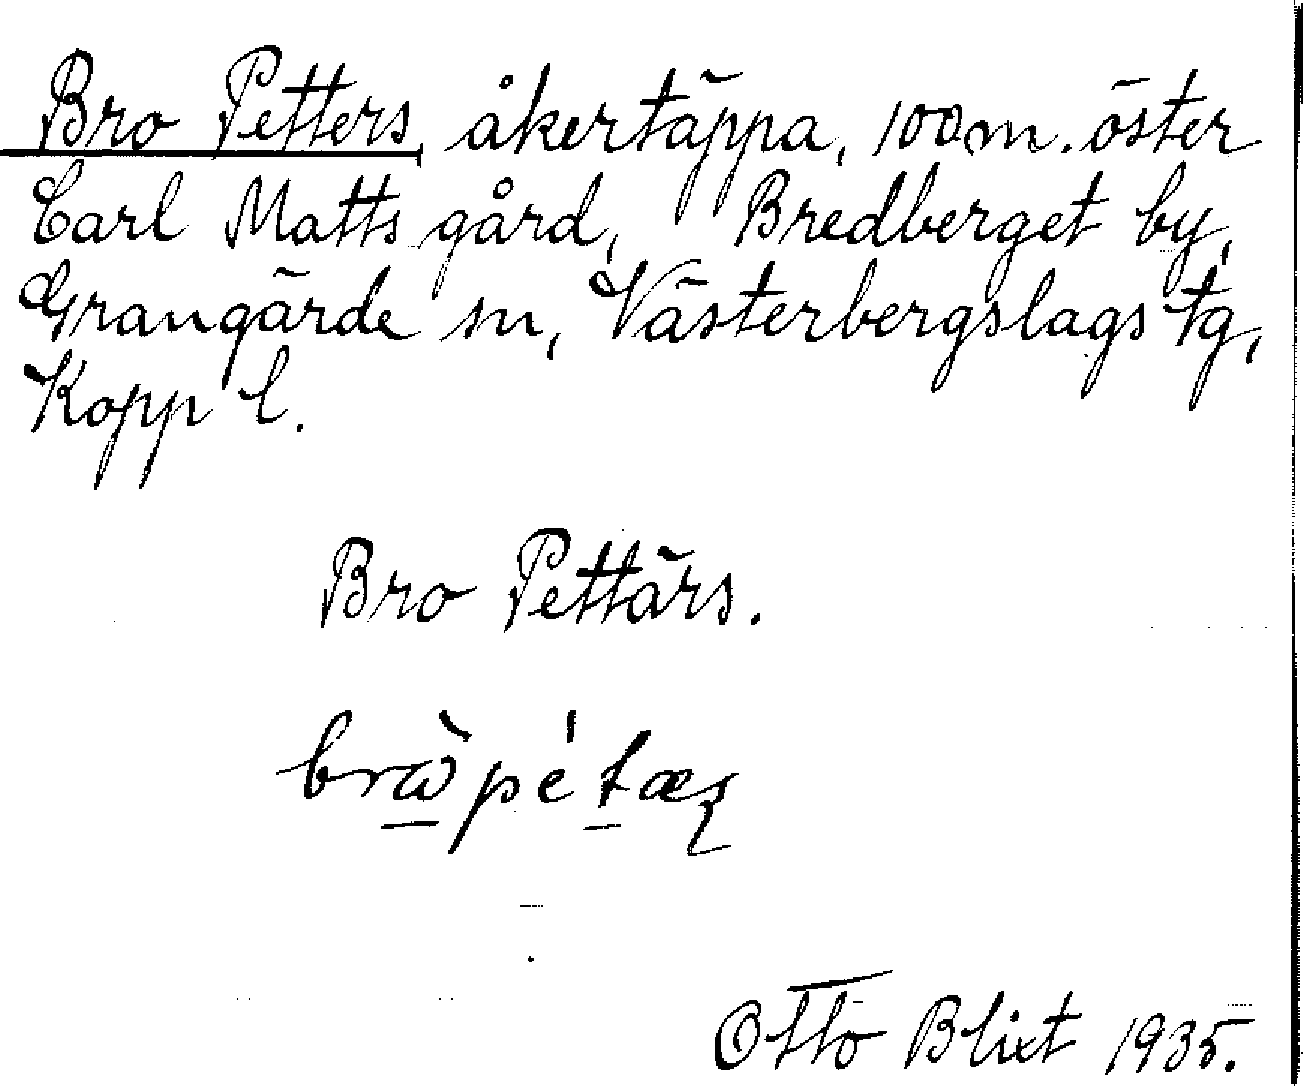 Bro Petters, åkertäppa, 100 m. öster
Carl Matts gård, Bredberget by,
Grangärde sn, Västerbergslags tg,
Kopp l.
Bro Pettärs.
brὼpétæʂ
Otto Blixt 1935.